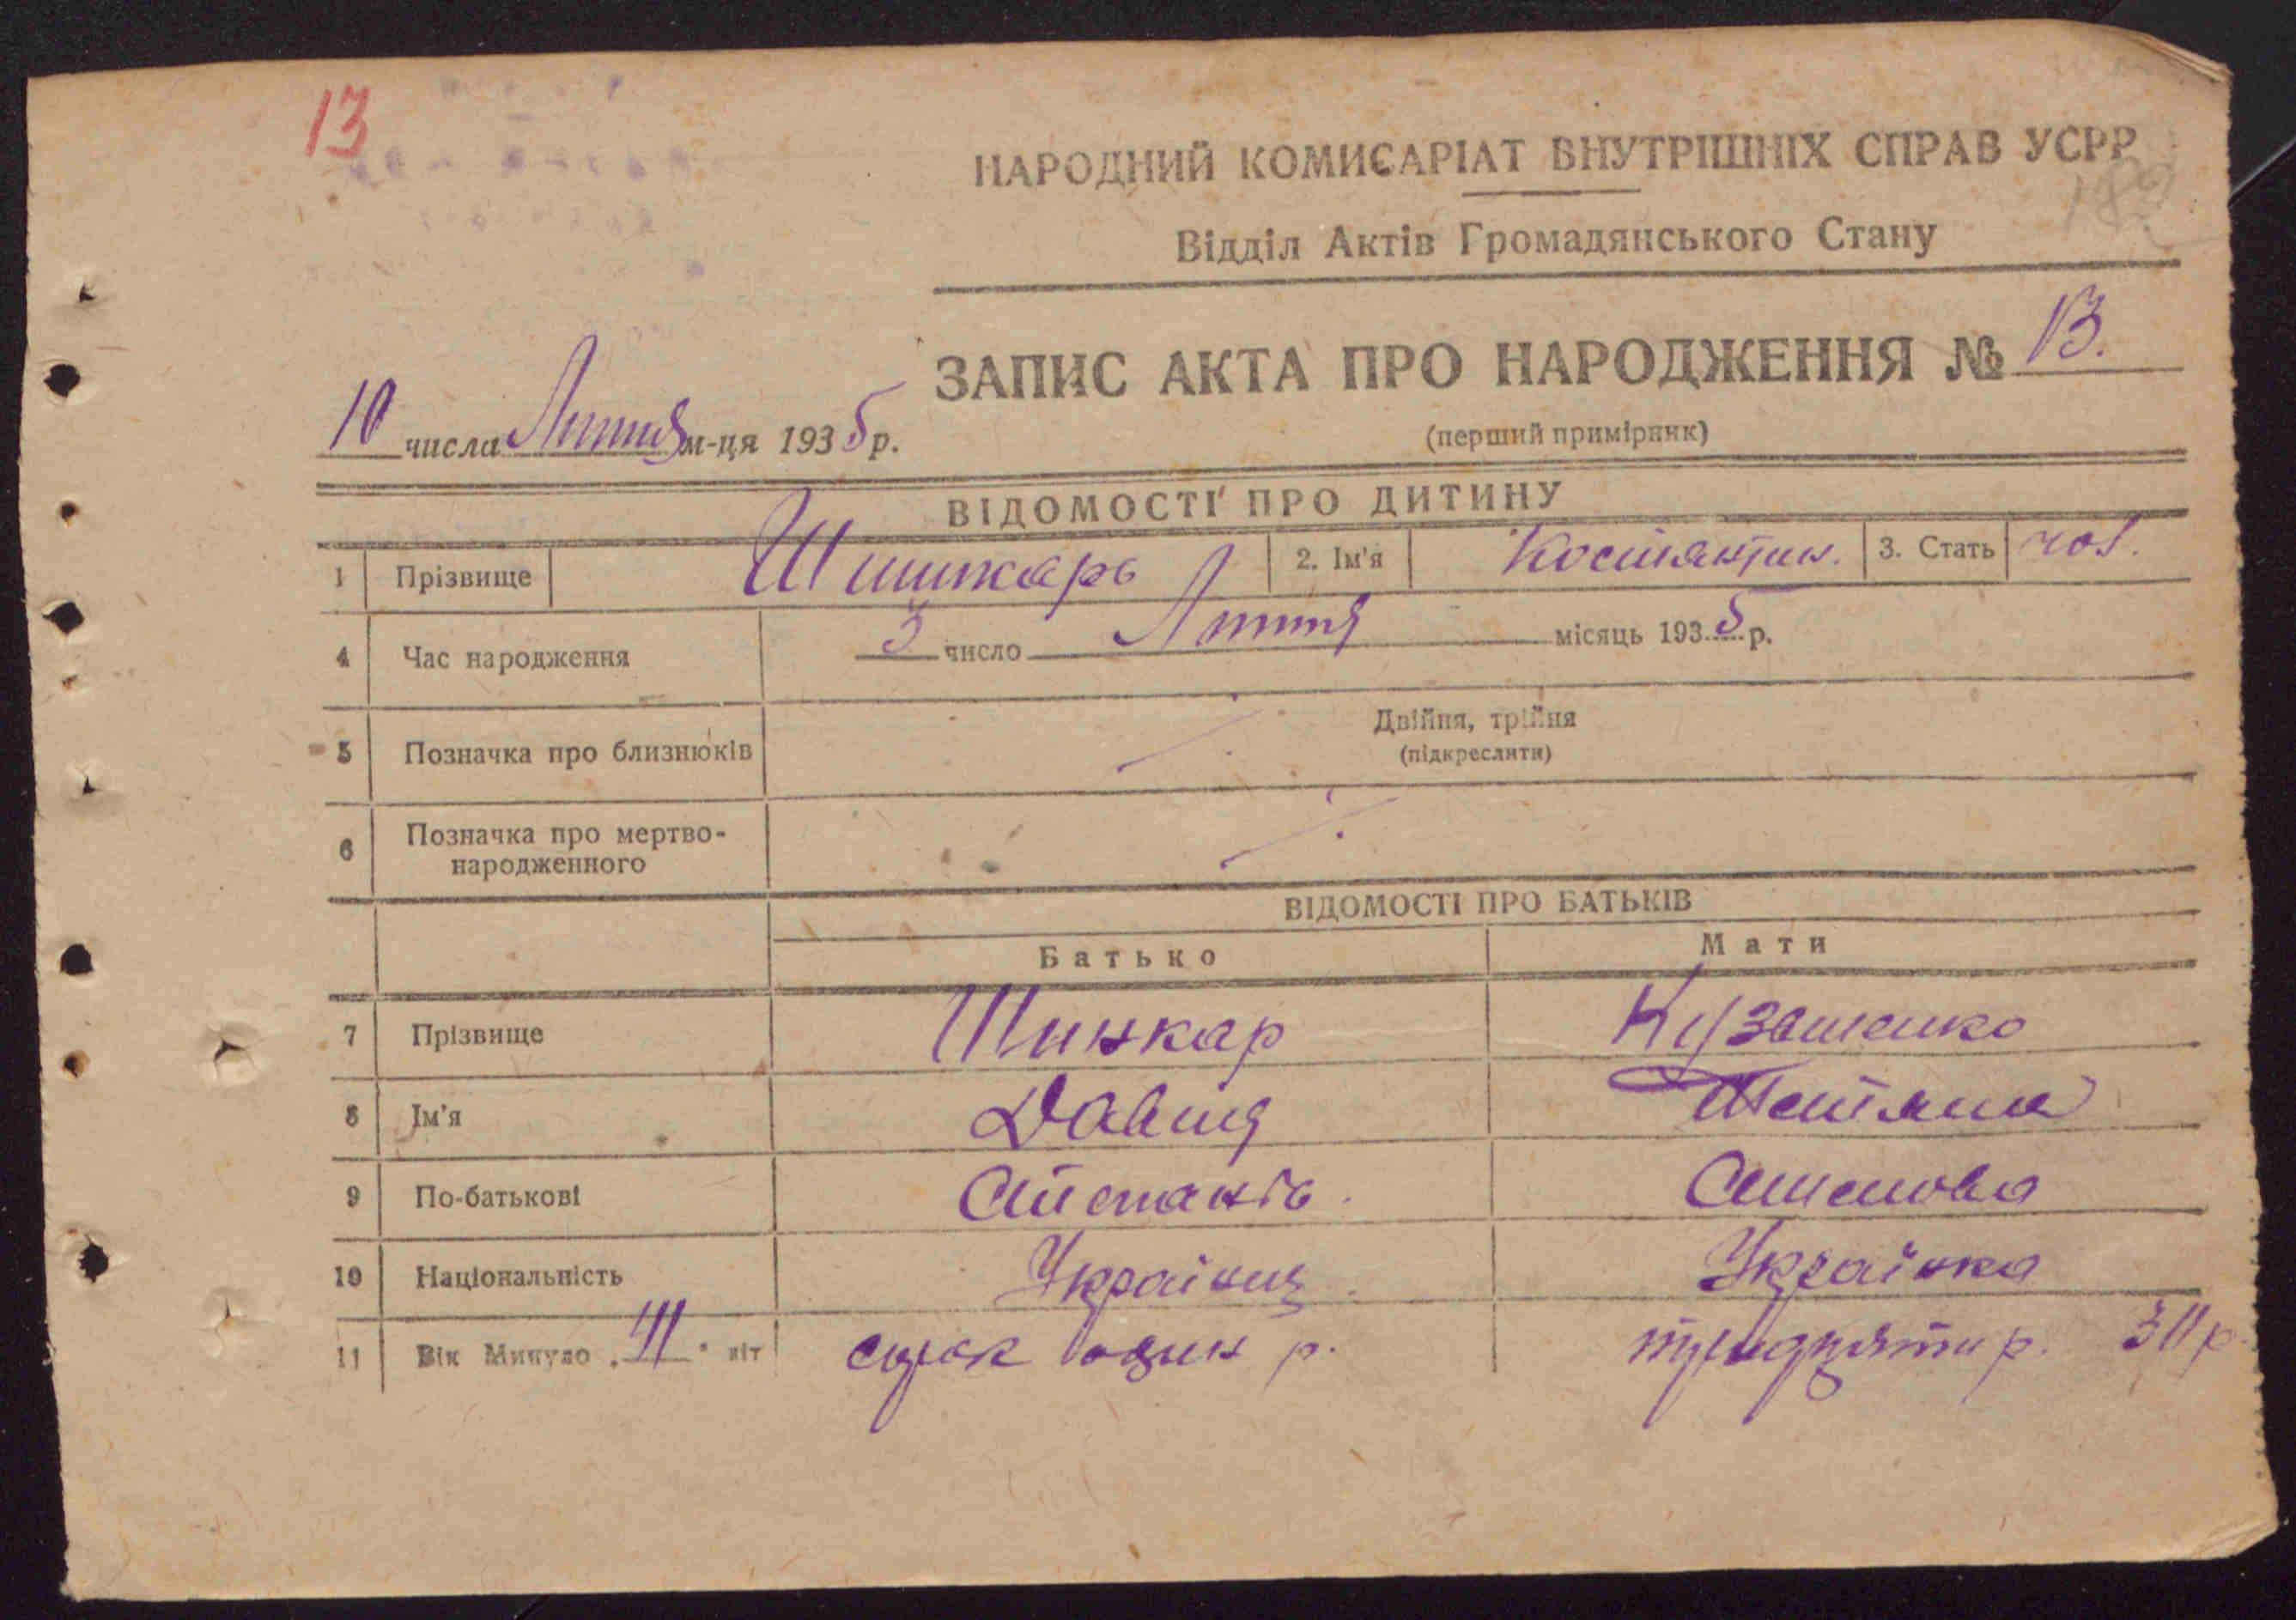 13
НАРОДНИЙ КОМИСАРІАТ ВНУТРІШНІХ СПРАВ УСРР
182
Відділ Актів Громадянського Стану
ЗАПИС АКТА ПРО НАРОДЖЕННЯ № 13.
10 числа Липня м-ця 1935 р.
(перший примірник)
ВІДОМОСТІ ПРО ДИТИНУ
1 Прізвище Шинкарь 2. Ім'я Костянтин. 3. Стать чол.
4 Час народження 3 число Липня місяць 1935 р.
5 Позначка про близнюків Двійня, трійня
(підкреслити)
6 Позначка про мертво-
народженного
ВІДОМОСТІ ПРО БАТЬКІВ
Батько Мати
7 Прізвище Шинкар
8 Ім'я Давид Тетяна
9 По-батькові Семенова
10 Національність Українець Українка
11 Вік Минуло „41" літ сорок один р. тридцяти р.